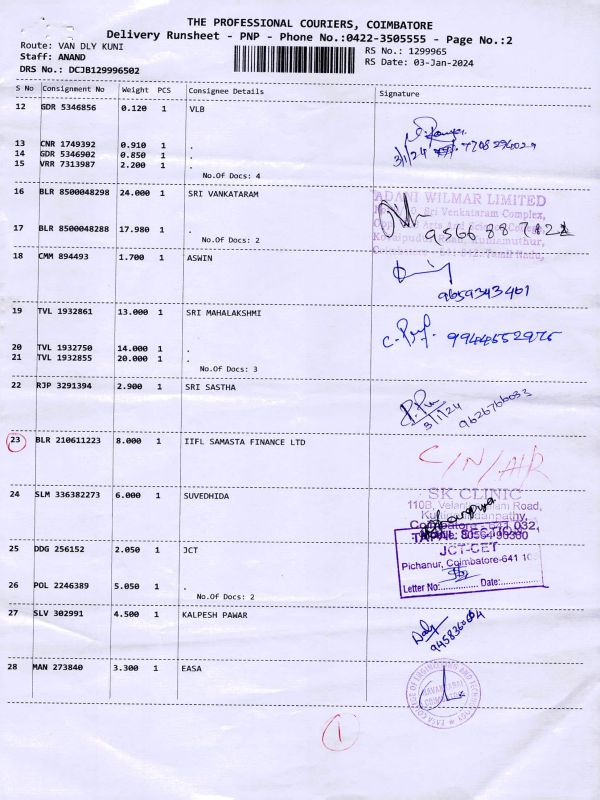 THE PROFESSIONAL COURIERS, COIMBATORE
Delivery Runsheet - PNP - Phone No.:0422-3505555 - Page No.:2
Route: VAN DLY KUNI
RS No.: 1299965
Staff: ANAND
RS Date: 03-Jan-2024
DRS No.: DCJB129996502
S No Consignment No Weight PCS Consignee Details Signature
12 GDR 5346856 0.120 1 VLB
13 CNR 1749392 0.910 1 .
14 GDR 5346902 0.850 1 .
15 VRR 7313987 2.200 1 .
3/1/24
No.Of Docs: 4
16 BLR 8500048298 24.000 1 SRI VANKATARAM
ADANI WILMAR LIMITED
Sri Venkataram Complex,
17 BLR 8500048288 17.980 1 .
No.Of Docs: 2
Tamil Nadu,
18 CMM 894493 1.700 1 ASWIN
9659343401
19 TVL 1932861 13.000 1 SRI MAHALAKSHMI
20 TVL 1932750 14.000 1 .
21 TVL 1932855 20.000 1 .
No.Of Docs: 3
22 RJP 3291394 2.900 1 SRI SASTHA
3/1/24 9626766033
23 BLR 210611223 8.000 1 IIFL SAMASTA FINANCE LTD
C/N/AR
24 SLM 336382273 6.000 1 SUVEDHIDA
SK CLINIC
110B, Road,
25 DDG 256152 2.050 1 JCT
JCT-CET
Pichanur, Coimbatore-641 105
26 POL 2246389 5.050 1 .
Letter No:.............. Date:..............
No.Of Docs: 2
27 SLV 302991 4.500 1 KALPESH PAWAR
28 MAN 273840 3.300 1 EASA
EASA COLLEGE OF ENGINEERING AND TECHNOLOGY
1